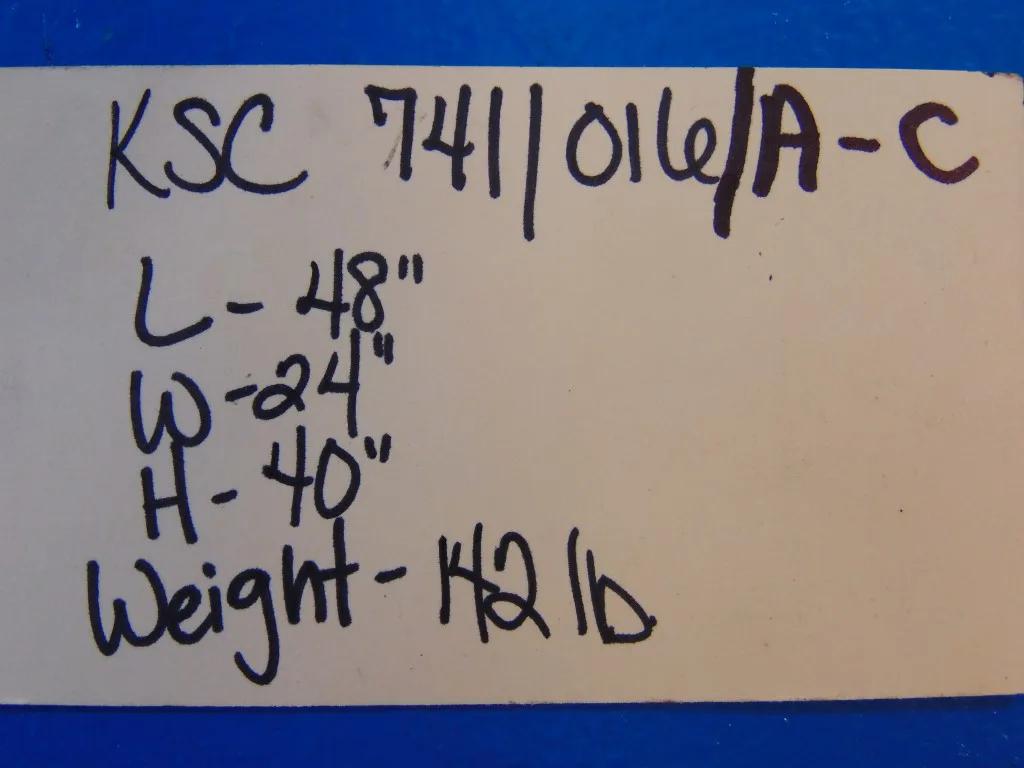 KSC 741/016/A-C
L- 48"
W-24"
H- 40"
Weight- 142 lb